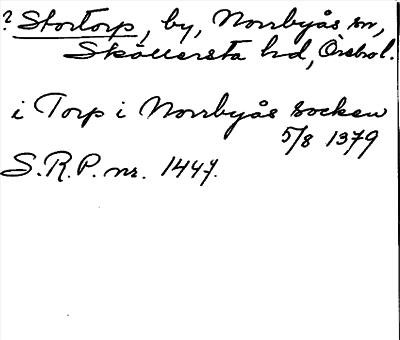 ? Stortorp, by, Norrbyås sn,
Sköllersta hd, Örebro l.
i Torp i Norrbyås socken
5/8 1379
S.R.P. nr. 1447.